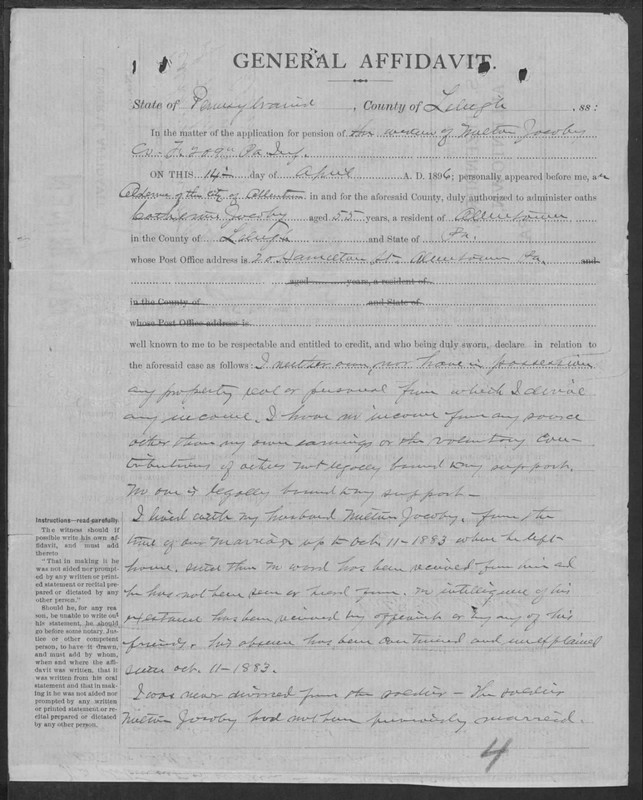 GENERAL AFFIDAVIT.
State of Pennsylvania , County of Lehigh , SS:
In the matter of the application for pension of the widow of Milton Jacoby
Co. F. 209th Pa Inf.
ON THIS 14th day of April A. D. 1896; personally appeared before me, an
Alderman of the city of Allentown in and for the aforesaid County, duly authorized to administer oaths
Catharine Jacoby aged 55 years, a resident of Allentown
in the County of Lehigh and State of Pa.
whose Post Office address is Hamilton St. Allentown Pa. and
aged years, a resident of
in the County of and State of
whose Post Office address is
well known to me to be respectable and entitled to credit, and who being duly sworn, declare in relation to
the aforesaid case as follows: I neither own, nor have in possession
any property real or personal from which I derive
any income. I have no income from any source
other than my own earnings or the voluntary con-
tributions of others not legally bound to my support.
No one is legally bound to my support —
I lived with my husband Milton Jacoby, from the
time of our marriage up to Oct. 11 - 1883 when he left
home. since then no word has been received from him and
he has not been seen or heard from. no intelligence of his
existance has been received by or by any of his
friends. his absence has been continued and unexplained
since Oct. 11 - 1883.
I was never divorced from the soldier — The soldier
Milton Jacoby had not been previously married.
Instructions—read carefully.
The witness should if
possible write his own af-
fidavit, and must add
thereto
"That in making it he
was not aided nor prompt-
ed by any written or print-
ed statement or recital pre-
pared or dictated by any
other person."
Should he, for any rea-
son, be unable to write out
his statement, he should
go before some notary, Jus-
tice or other competent
person, to have it drawn,
and must add by whom,
when and where the affi-
davit was written, that it
was written from his oral
statement and that in mak-
ing it he was not aided nor
prompted by any written
or printed statement or re-
cital prepared or dictated
by any other person.
4